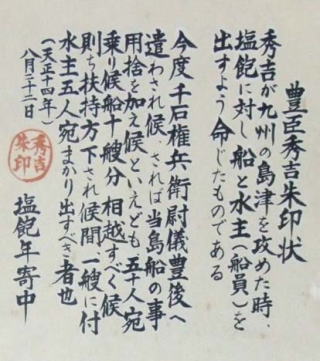 豊臣秀吉朱印状
秀吉が九州の島津を攻めた時、
塩飽に対し船と水主(船員)を
出すよう命じたものである
今度千石権兵衛尉儀豊後へ
遣わされ候、されば当島船の事
用捨を加え候といえども五十人宛
乗り候船十艘分相越すべく候
則ち扶持方下され候間一艘に付
水主五人宛まかり出すべき者也
(天正十四年)
八月二十二日
秀吉
朱印
塩飽年寄中